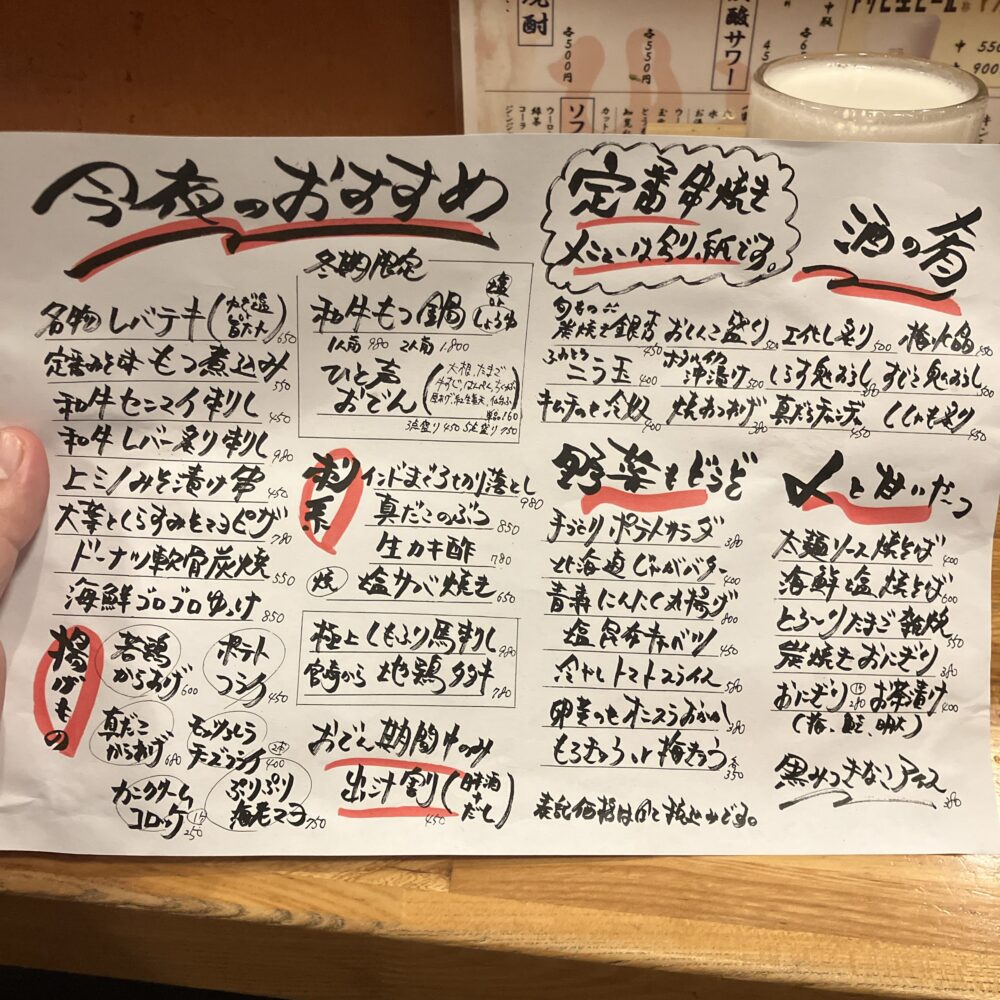 今夜のおすすめ
名物レバテキ
650
定番みそ味もつ煮込み
550
和牛センマイ刺し
450
和牛レバー炙り刺し
980
上ミノみそ漬け串
450
大葉としらすみそマヨピザ
780
ドーナツ軟骨炭焼
550
海鮮ゴロゴロゆっけ
850
揚げもの
若鶏
からあげ
600
ポテト
フライ
450
真だこ
からあげ
680
モッツァレラ
チーズフライ
2本
400
カニクリーム
コロッケ
1ケ
250
ぷりぷり
海老マヨ
750
冬期限定
和牛もつ鍋
塩
しょうゆ
1人前 980 2人前 1.800
ひと声
おでん
大根、たまご
単品160
3点盛り 450 5点盛り 750
刺系
インドまぐろ切り落とし
980
真だこのぶつ
850
生カキ酢
780
焼
塩サバ焼き
650
極上しもふり馬刺し
980
宮崎から地鶏タタキ
780
おでん期間中のみ
出汁割り
(日本酒
+
だし)
450
定番串焼き
メニューは別紙です。
酒の肴
炭焼き銀杏
450
おしんこ盛り
500
エイヒレ炙り
500
うずら玉
400
沖漬け
500
しらす鬼おろし
380
すじこ鬼おろし
500
キムチのせ冷奴
400
焼あつあげ
ししゃも炙り
450
野菜もどうぞ
手づくりポテトサラダ
380
北海道じゃがバター
400
青森にんにく丸揚げ
800
塩昆布キャベツ
450
冷やしトマトスライス
380
卵黄のせオニスラおかか
380
もろきゅう いか梅きゅう
各
350
〆と甘いだ〜つ
太麺ソース焼そば
400
海鮮塩焼そば
600
とろ〜りたまご雑炊
550
炭焼きおにぎり
380
おにぎり
1ケ
280
お茶漬け
400
(梅、鮭、明太)
黒みつきなこアイス
380
表記価格は全て税込みです。
焼酎
各550円
各500円
酸サワー
ソフ
コーラ
緑茶
中 550
900